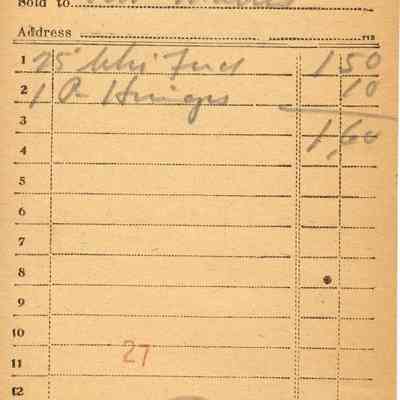 Sold to
Address
1 25' 1.50
2 1 Pr Hinges 10
3
4 1,60
5
6
7
8
9
10
11 27
12